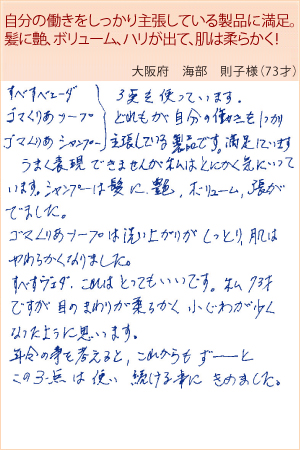 自分の働きをしっかり主張している製品に満足。
髪に艶、ボリューム、ハリが出て、肌は柔らかく!
大阪府 海部 則子様(73才)
すべすべヴェーダ
ゴマくりあソープ
ゴマくりあシャンプー
3点を使っています。
どれもが自分の働きをしっかり
主張している製品です。満足しています
うまく表現できませんが私はとにかく気にいって
います。シャンプーは髪に艶、ボリューム、張が
でました。
ゴマくりあソープは洗い上がりがしっとり、肌は
やわらかくなりました。
すべすべヴェダ、これはとってもいいです。私73才
ですが目のまわりが柔らかく小じわが少く
なったように思います。
年令の事を考えると、これからもずーーっと
この3点は使い続ける事にきめました。